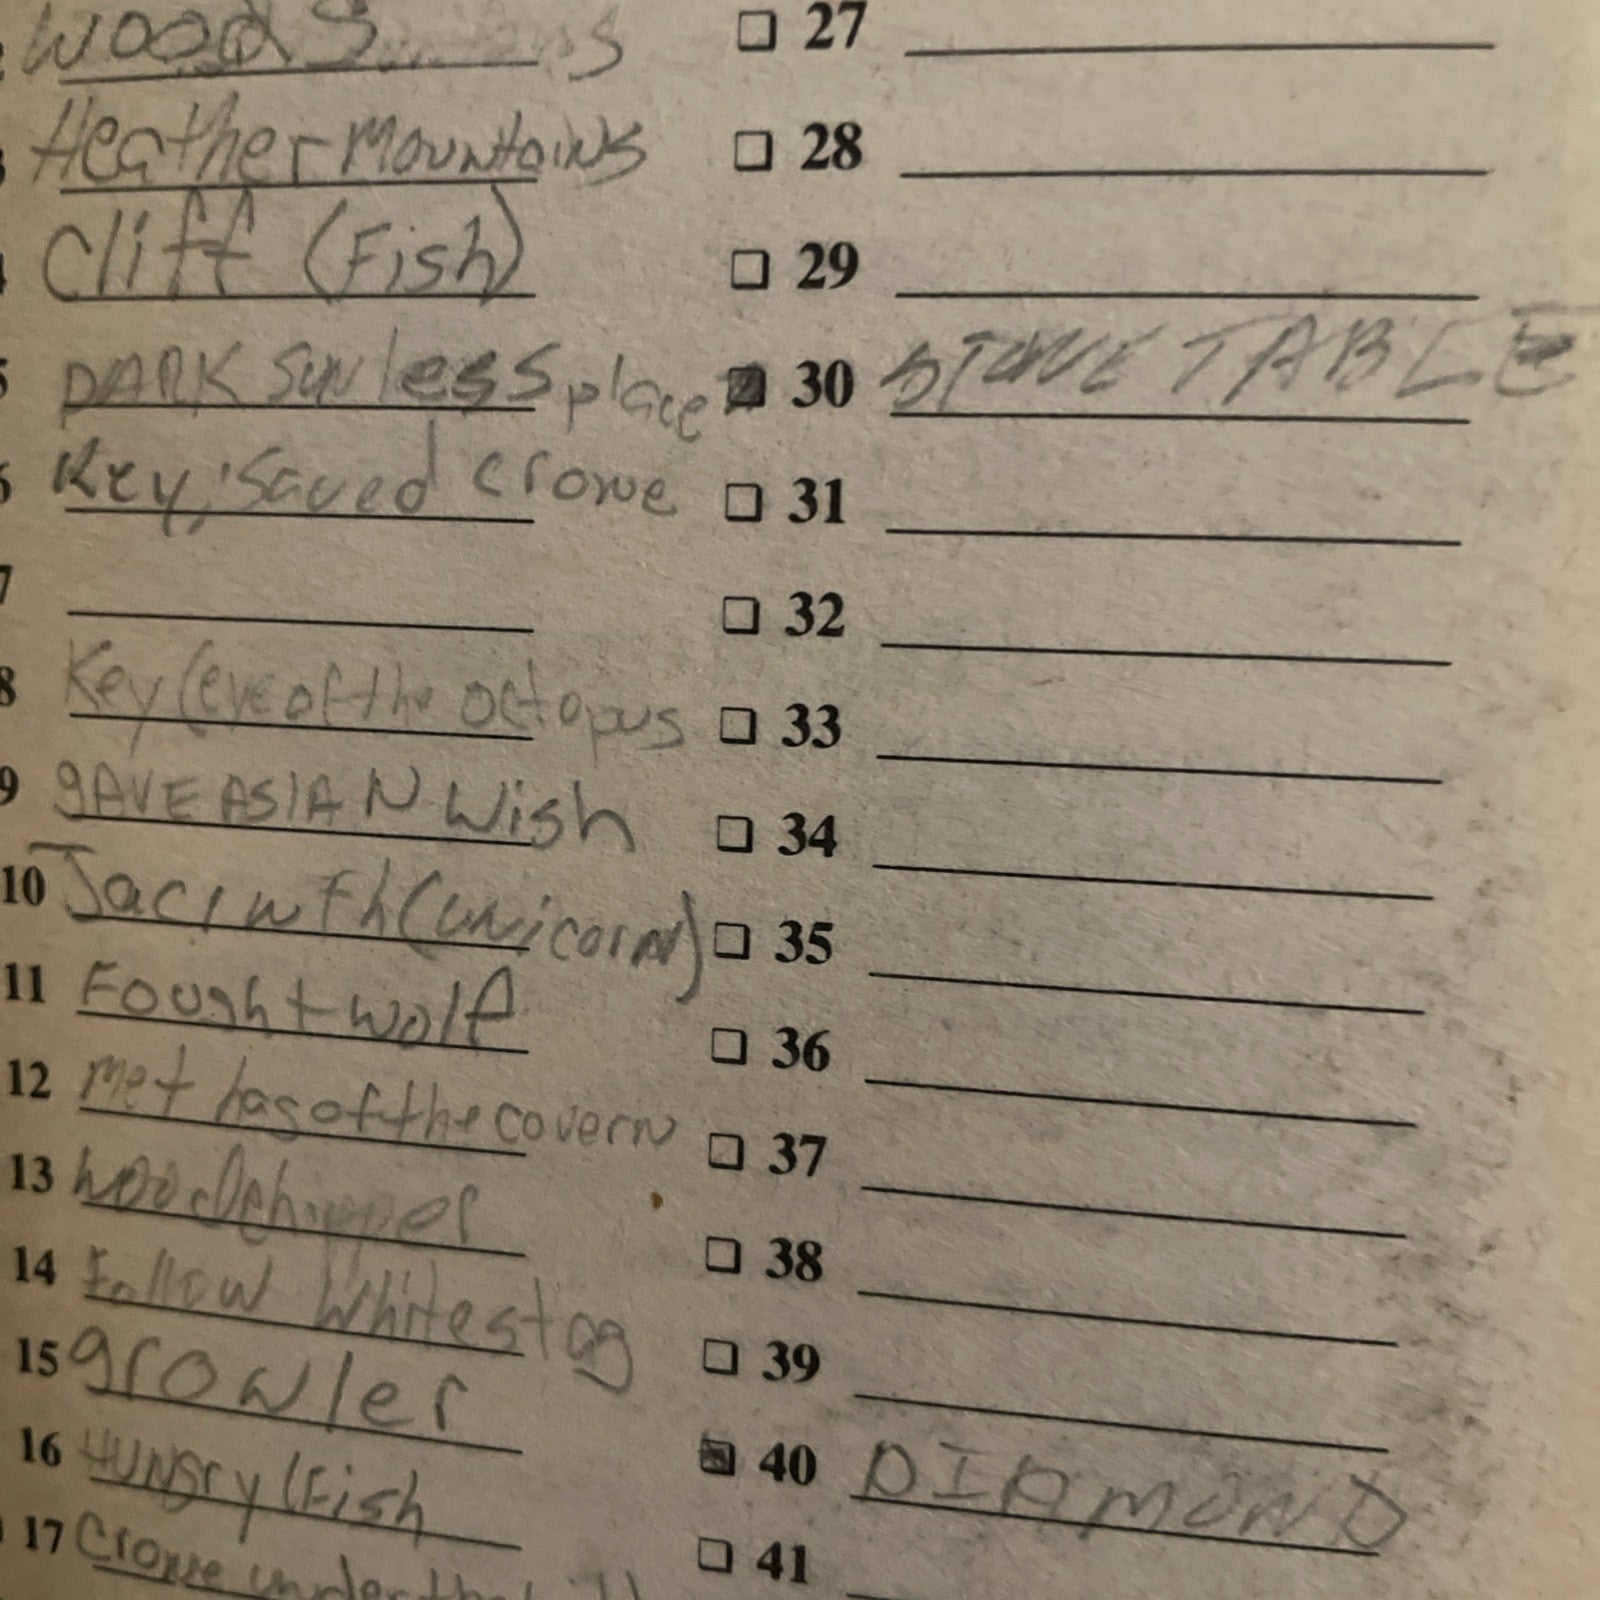 Woods
Heather Mountains
Cliff (Fish)
DARK Sunless place
Key, Saved Crowe
7
8 Key (eye of the octopus
9 gAVE ASIAN Wish
10 Jacinth (unicorn)
11 Fought wolf
12 Met hag of the covern
13 woodchipper
14 Follow Whitestag
15 growler
16 HUNGry (Fish
17 Crowe under the
27
28
29
30 STONE TABLE
31
32
33
34
35
36
37
38
39
40 DIAMOND
41